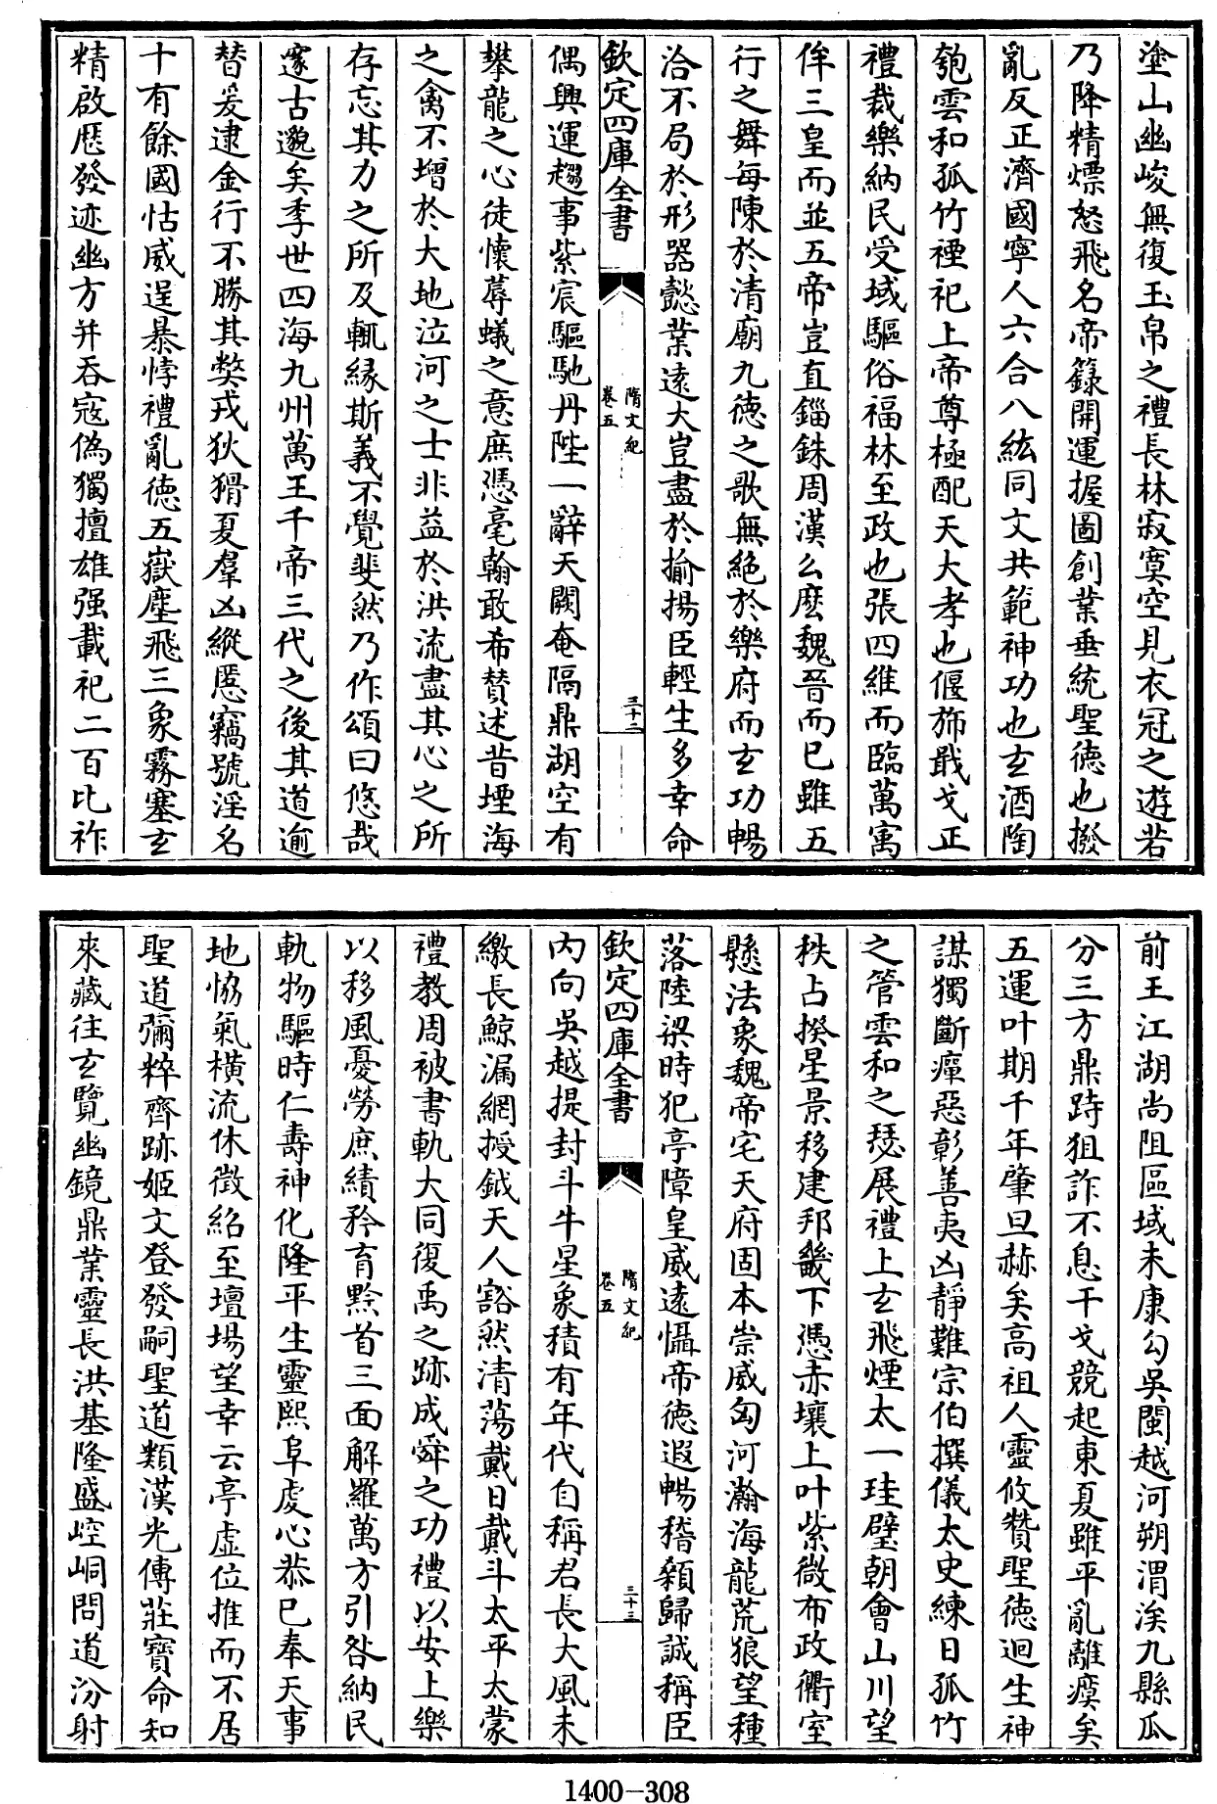 塗山幽峻無復玉帛之禮長林寂寞空見衣冠之遊若
乃降精熛怒飛名帝籙開運握圖創業垂統聖德也撥
亂反正濟國寧人六合八紘同文共範神功也玄酒陶
匏雲和孤竹禋祀上帝尊極配天大孝也偃斾戢戈正
禮裁樂納民受域驅俗福林至政也張四維而臨萬寓
侔三皇而並五帝豈直錙銖周漢么麽魏晉而已雖五
行之舞每陳於清廟九德之歌無絶於樂府而玄功暢
洽不局於形器懿業遠大豈盡於揄揚臣輕生多幸命
欽定四庫全書
隋文紀
卷五
三十二
偶興運趨事紫宸驅馳丹陛一辭天闕奄隔鼎湖空有
攀龍之心徒懷蓐蟻之意庶憑毫翰敢希贊述昔堙海
之禽不增於大地泣河之士非益於洪流盡其心之所
存忘其力之所及輒緣斯義不覺斐然乃作頌曰悠哉
邃古邈矣季世四海九州萬王千帝三代之後其道逾
替爰逮金行不勝其獘戎狄猾夏羣凶縱慝竊號淫名
十有餘國怙威逞暴悖禮亂德五嶽塵飛三象霧塞玄
精啟厯發迹幽方并吞寇偽獨擅雄强載祀二百比祚
前王江湖尚阻區域未康勾吳閩越河朔渭涘九縣瓜
分三方鼎跱狙詐不息干戈競起東夏雖平亂離瘼矣
五運叶期千年肇旦赫矣高祖人靈攸贊聖德迥生神
謀獨斷癉惡彰善夷凶靜難宗伯撰儀太史練日孤竹
之管雲和之瑟展禮上玄飛煙太一珪璧朝會山川望
秩占揆星景移建邦畿下憑赤壤上叶紫微布政衢室
懸法象魏帝宅天府固本崇威匈河瀚海龍荒狼望種
落陸梁時犯亭障皇威遠懾帝德遐暢稽顙歸誠稱臣
欽定四庫全書
隋文紀
卷五
三十三
内向吳越提封斗牛星象積有年代自稱君長大風未
繳長鯨漏網授鉞天人豁然清蕩戴日戴斗太平太蒙
禮教周被書軌大同復禹之跡成舜之功禮以安上樂
以移風憂勞庶績矜育黔首三面解羅萬方引咎納民
軌物驅時仁壽神化隆平生靈熙阜虔心恭已奉天事
地恊氣横流休徵紹至壇場望幸云亭虛位推而不居
聖道彌粹齊跡姬文登發嗣聖道類漢光傳莊寶命知
來藏往玄覽幽鏡鼎業靈長洪基隆盛崆峒問道汾射
1400-308